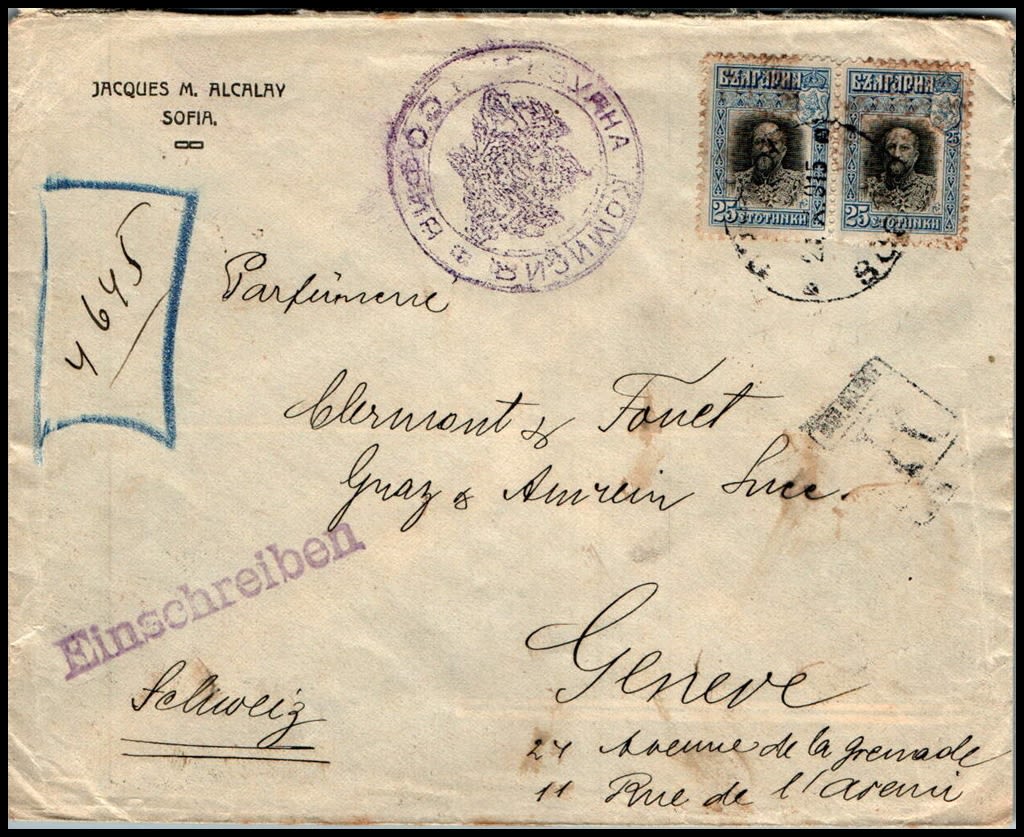 JACQUES M. ALCALAY
SOFIA.
ЦЕНЗУРНА КОМИСИЯ * В СОФИЯ
БЪЛГАРИЯ
25 СТОТИНКИ
БЪЛГАРИЯ
25
25 СТОТИНКИ
4645
Parfümerie
Clermont & Fouet
Graz & Amrein Succ.
Einschreiben
Schweiz
Geneve
24 Avenue de la Grenade
11 Rue de l'Aveni